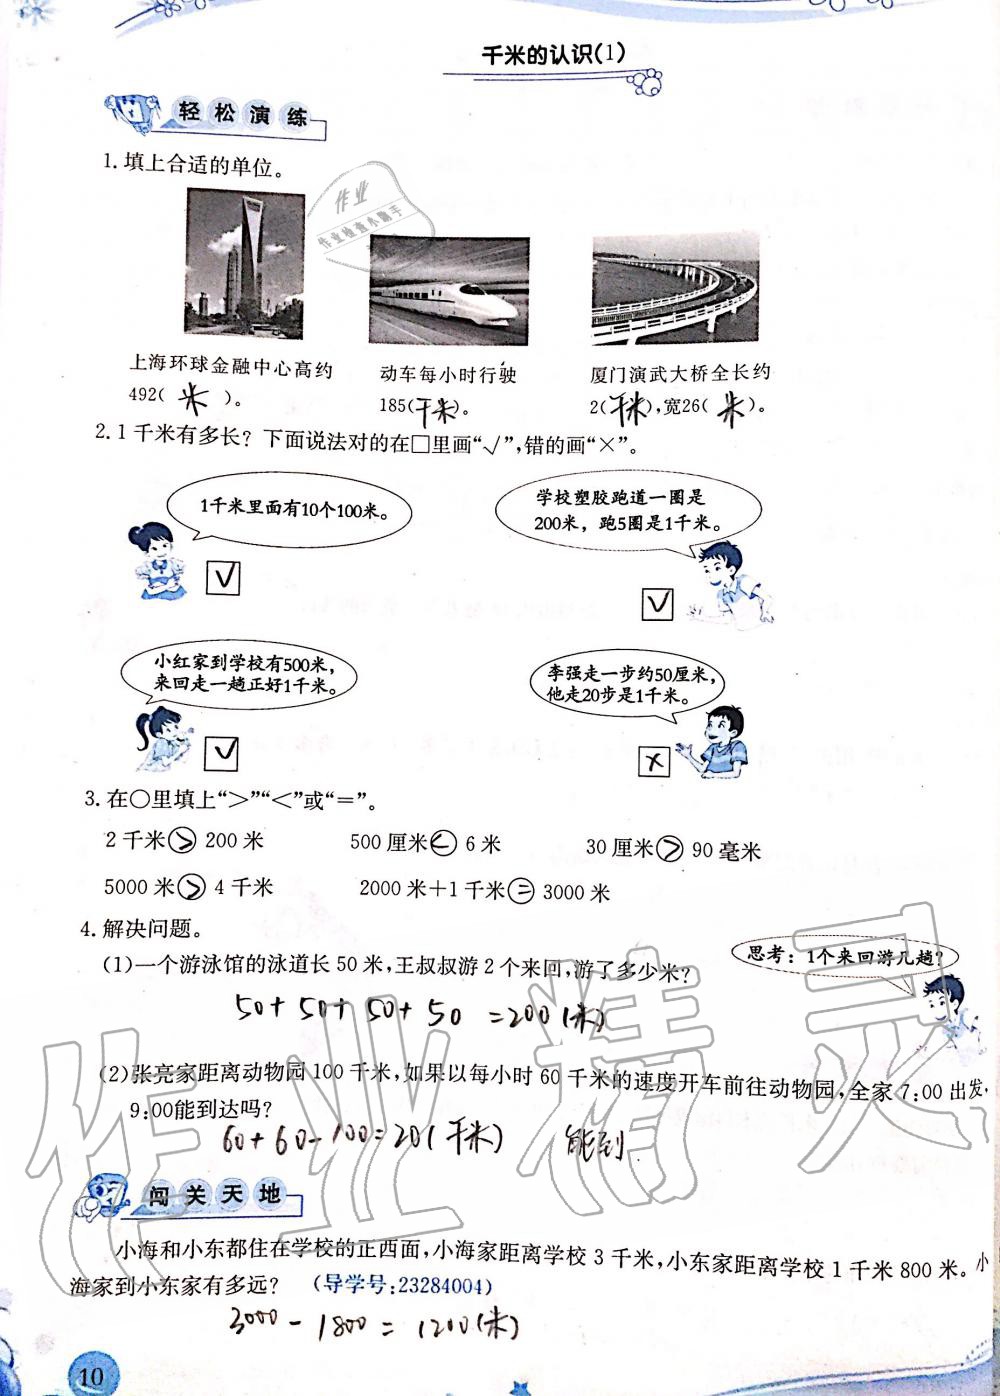 千米的认识(1)
轻松演练
1.填上合适的单位。
作业
作业检查小助手
上海环球金融中心高约
492( 米 )。
动车每小时行驶
185(千米)。
厦门演武大桥全长约
2(千米),宽26( 米 )。
2.1千米有多长?下面说法对的在□里画“√”,错的画“×”。
1千米里面有10个100米。
√
学校塑胶跑道一圈是
200米，跑5圈是1千米。
√
小红家到学校有500米,
来回走一趟正好1千米。
√
李强走一步约50厘米,
他走20步是1千米。
×
3.在○里填上“>”“<”或“=”。
2千米 > 200米 500厘米 < 6米 30厘米 > 90毫米
5000米 > 4千米 2000米+1千米 = 3000米
4.解决问题。
(1)一个游泳馆的泳道长50米,王叔叔游2个来回,游了多少米?
思考：1个来回游几趟?
50+50+50+50 =200(米)
(2)张亮家距离动物园100千米,如果以每小时60千米的速度开车前往动物园,全家7:00出发,
9:00能到达吗?
60+60-100=20(千米) 能到
闯关天地
小海和小东都住在学校的正西面,小海家距离学校3千米,小东家距离学校1千米800米。小
海家到小东家有多远? (导学号:23284004)
3000-1800=1200(米)
作业精灵
10